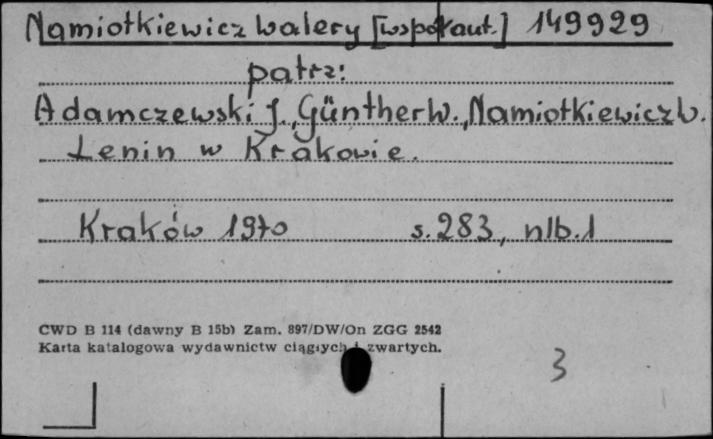 Namiotkiewicz Walery [współaut.] 149929
patrz:
Adamczewski J., Günther W., Namiotkiewicz W.
Lenin w Krakowie.
Kraków 1970 s. 283, nlb. 1
CWD B 114 (dawny B 15b) Zam. 897/DW/On ZGG 2542
Karta katalogowa wydawnictw ciągłych i zwartych.
3